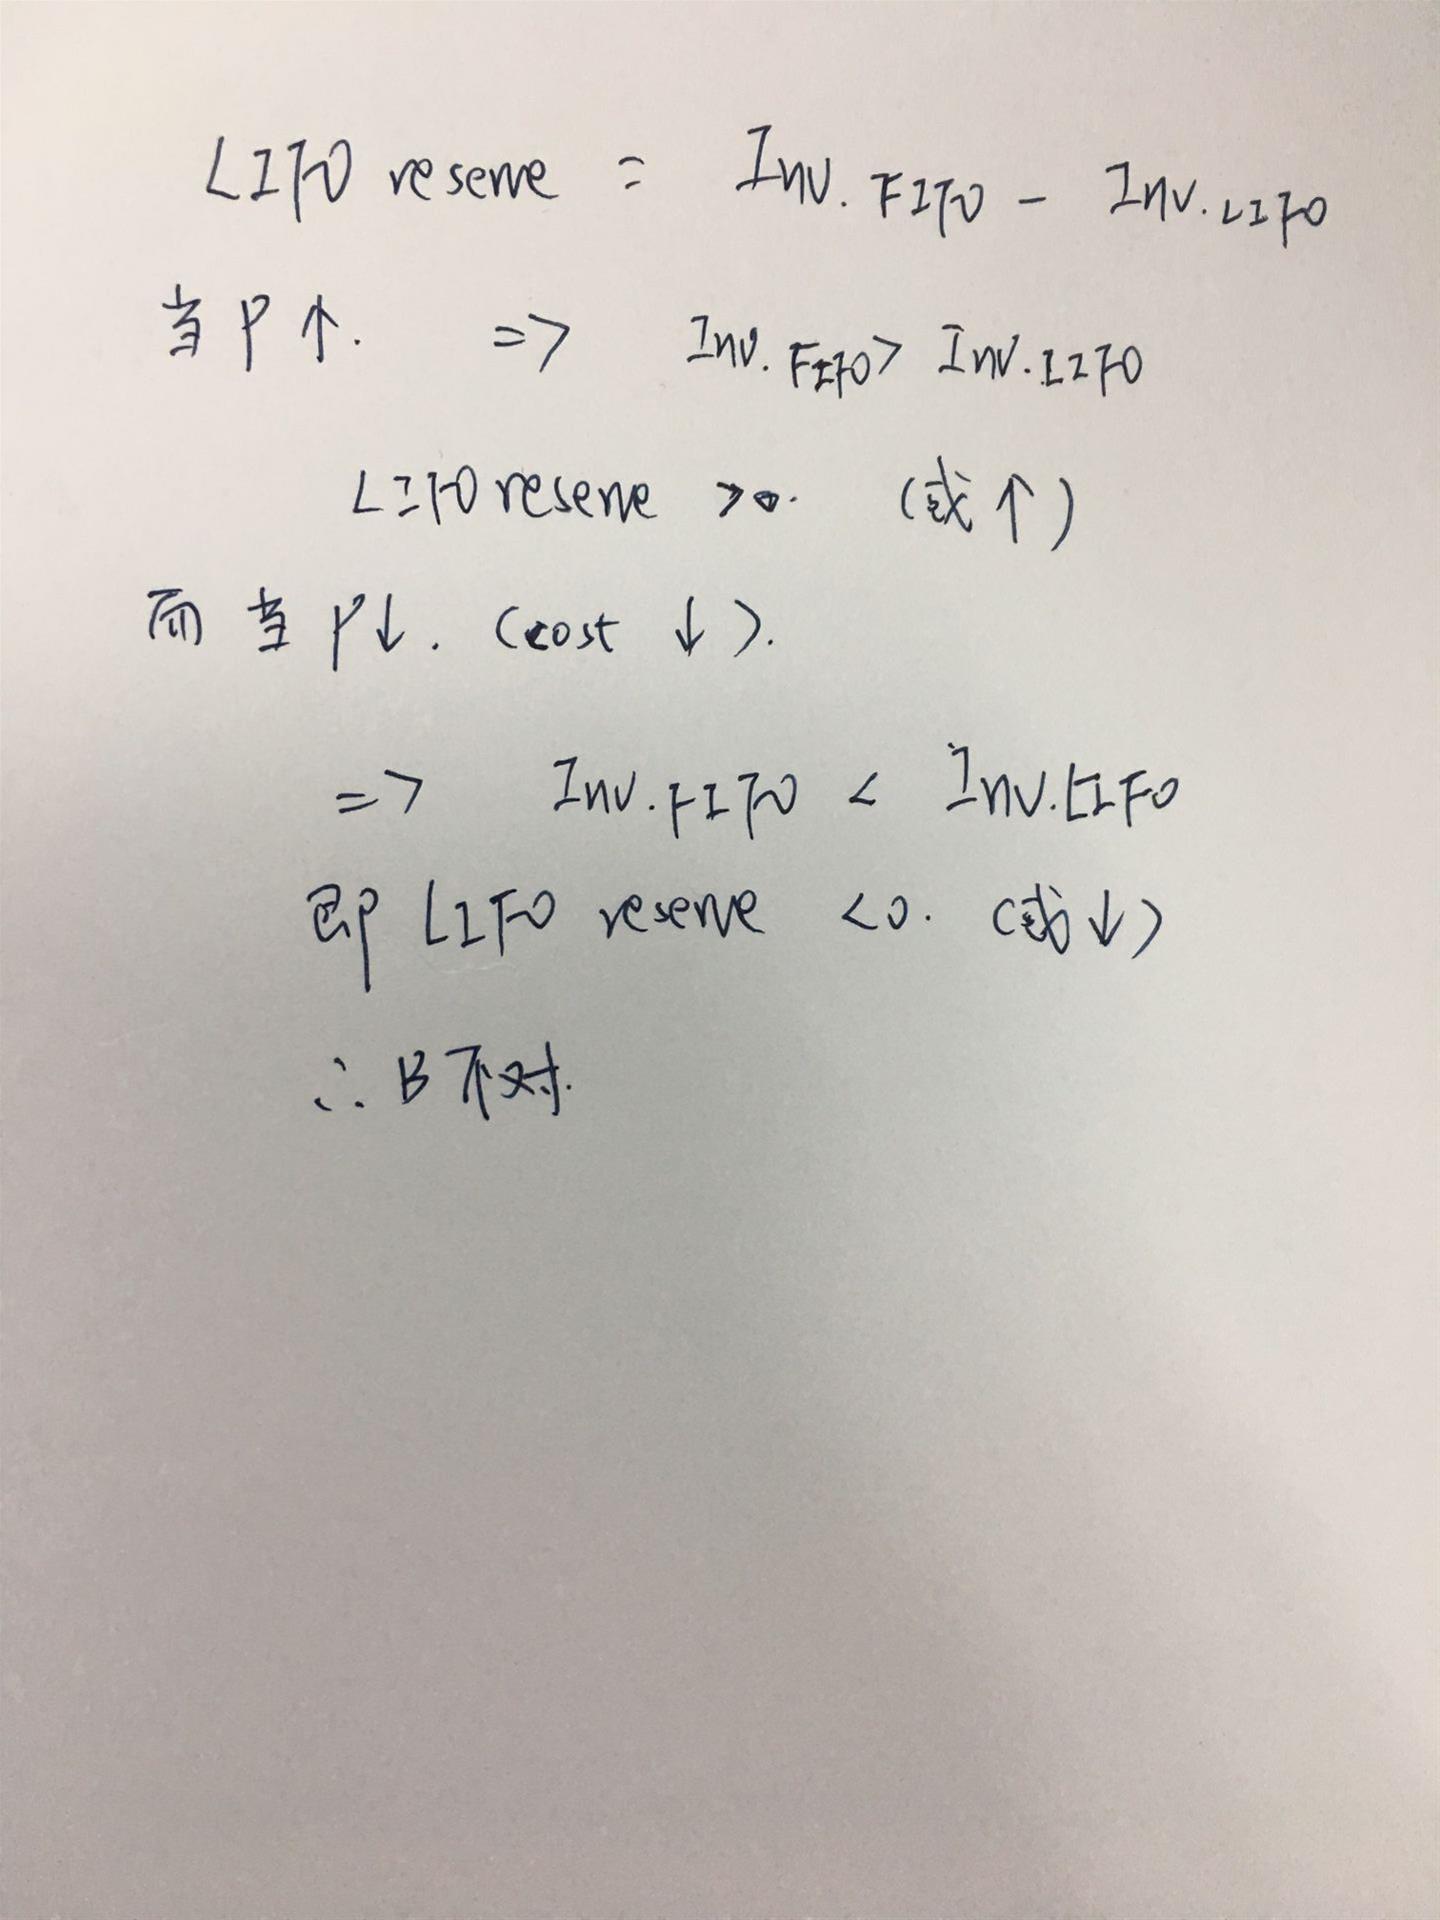 LIFO reserve = Inv. FIFO - Inv. LIFO
当 P ↑. => Inv. FIFO > Inv. LIFO
LIFO reserve >0. (或 ↑)
而 当 P↓. (cost ↓).
=> Inv. FIFO < Inv. LIFO
即 LIFO reserve <0. (或 ↓)
∴ B 不对.